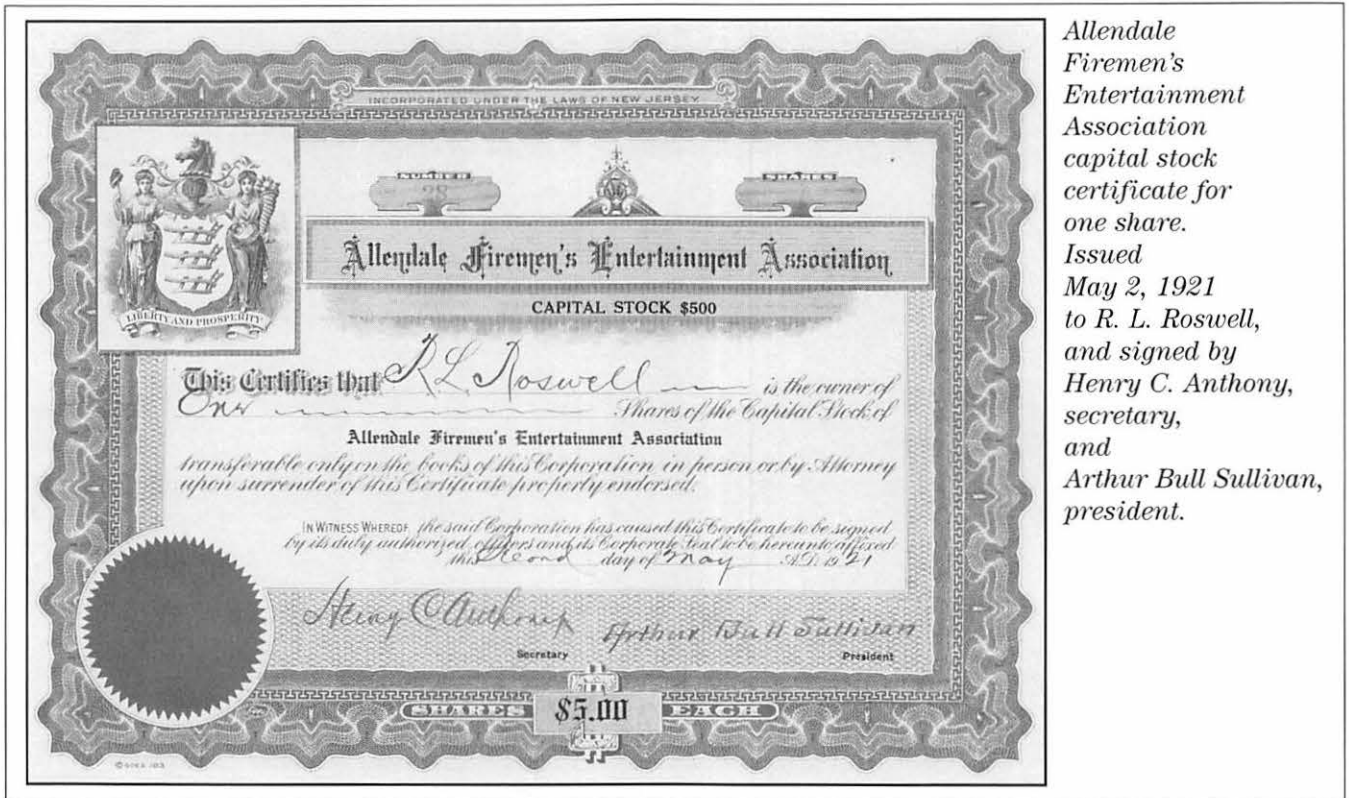 INCORPORATED UNDER THE LAWS OF NEW JERSEY
NUMBER
SHARES
Allendale Firemen's Entertainment Association
CAPITAL STOCK $500
LIBERTY AND PROSPERITY
This Certifies that R L Roswell is the owner of
One Shares of the Capital Stock of
Allendale Firemen's Entertainment Association
transferable only on the books of this Corporation in person or by Attorney
upon surrender of this Certificate properly endorsed.
IN WITNESS WHEREOF, the said Corporation has caused this Certificate to be signed
by its duly authorized officers and its Corporate Seal to be hereunto affixed
this Second day of May A.D. 1921
Henry C Anthony Arthur Bull Sullivan
Secretary President
SHARES $5.00 EACH
Allendale
Firemen's
Entertainment
Association
capital stock
certificate for
one share.
Issued
May 2, 1921
to R. L. Roswell,
and signed by
Henry C. Anthony,
secretary,
and
Arthur Bull Sullivan,
president.